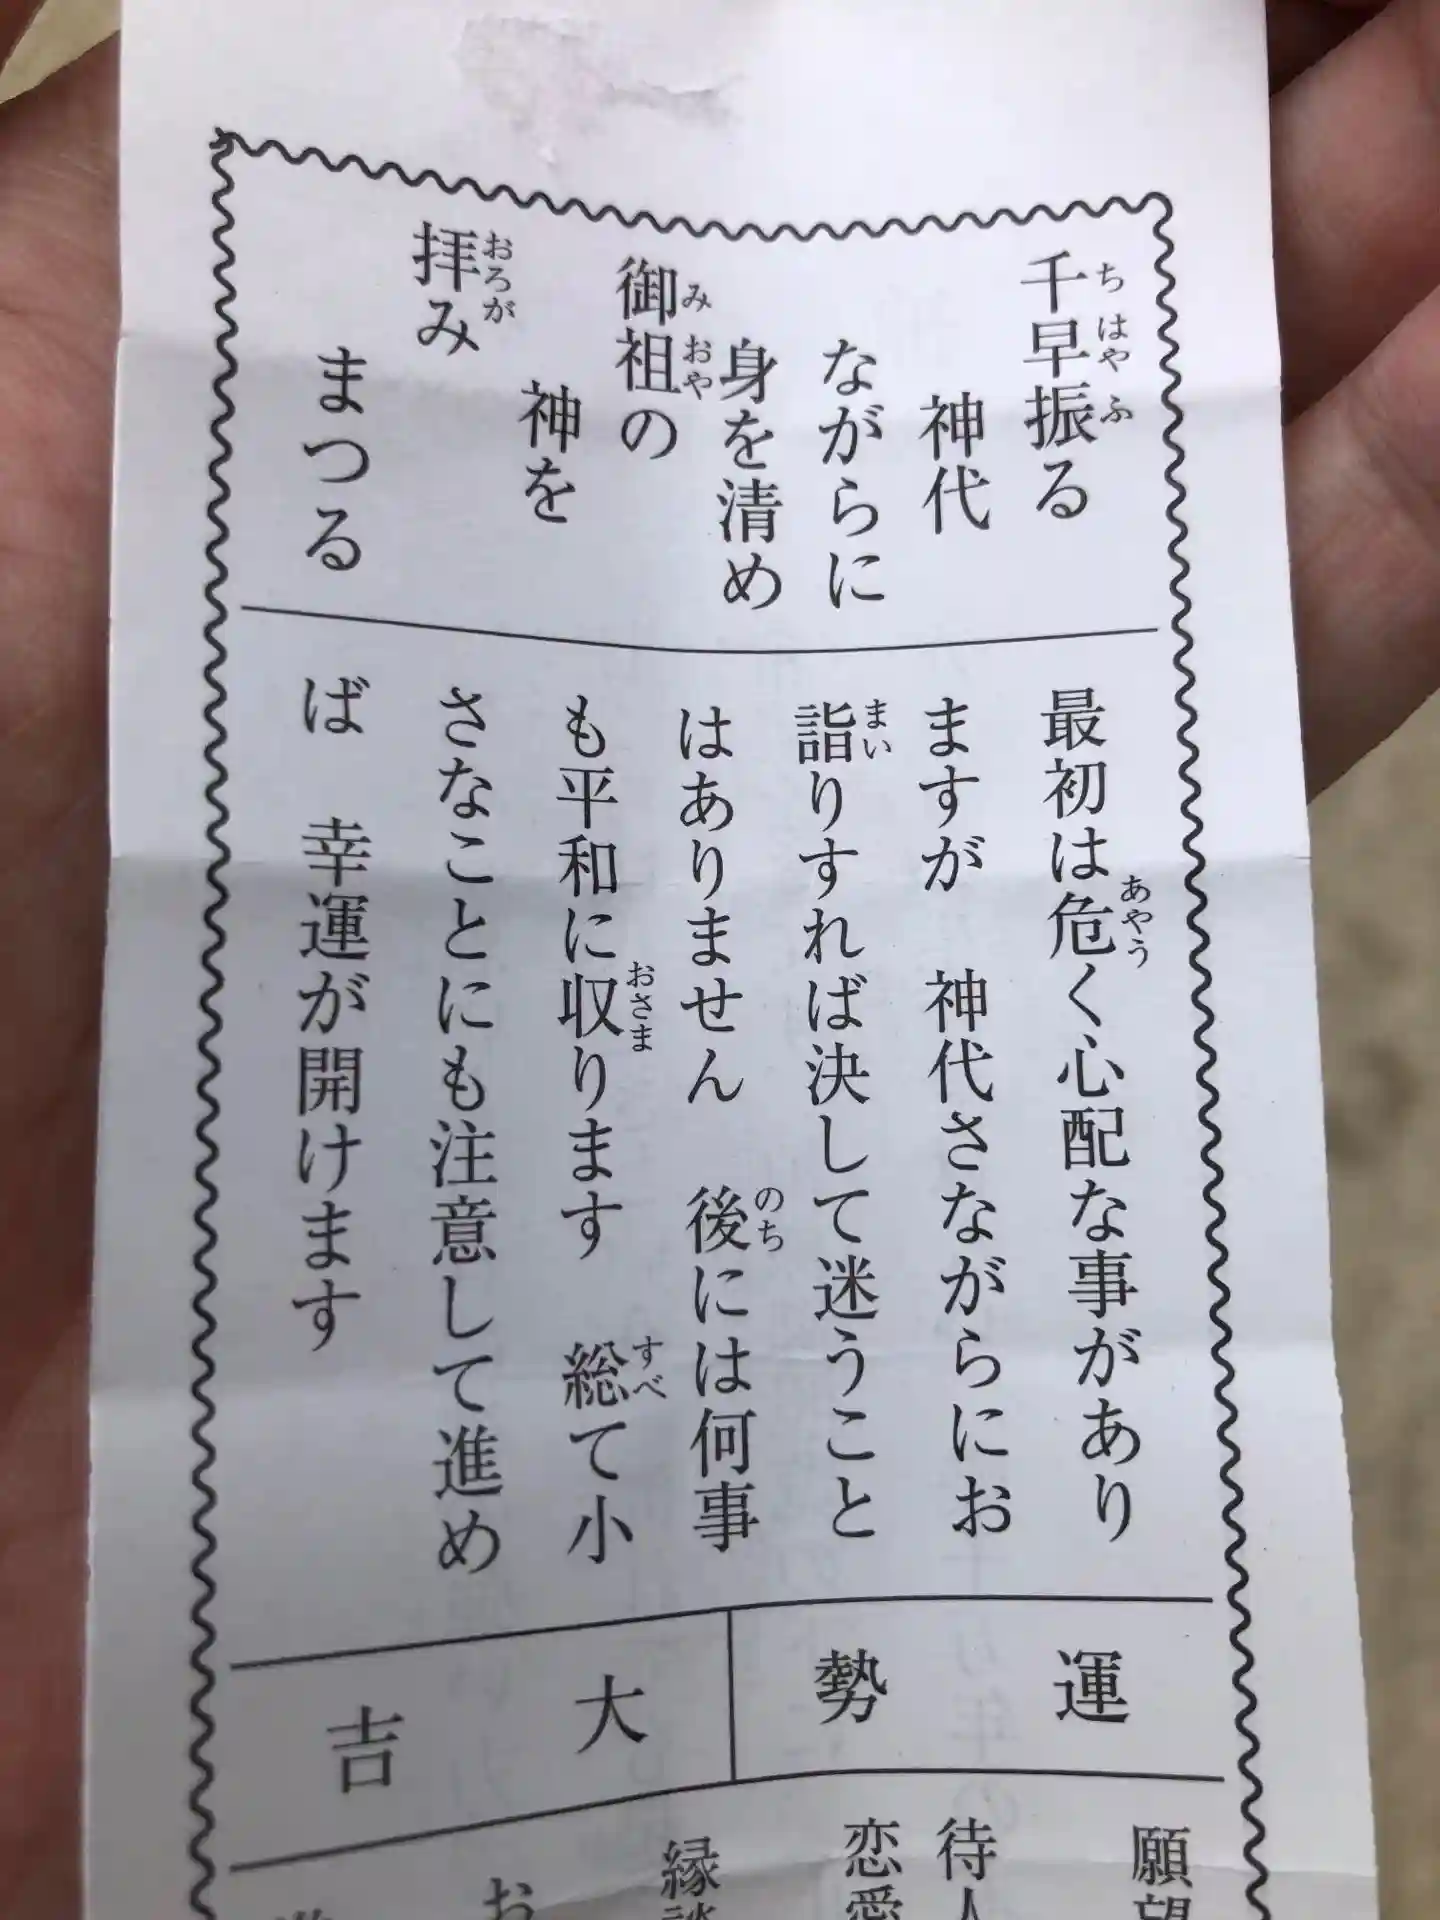 千早振る
神代
ながらに
身を清め
御祖の
神を
拝み
まつる
最初は危く心配な事があり
ますが 神代さながらにお
詣りすれば決して迷うこと
はありません 後には何事
も平和に収ります 総て小
さなことにも注意して進め
ば 幸運が開けます
運勢
大吉
願望
待人
恋愛
縁談
お